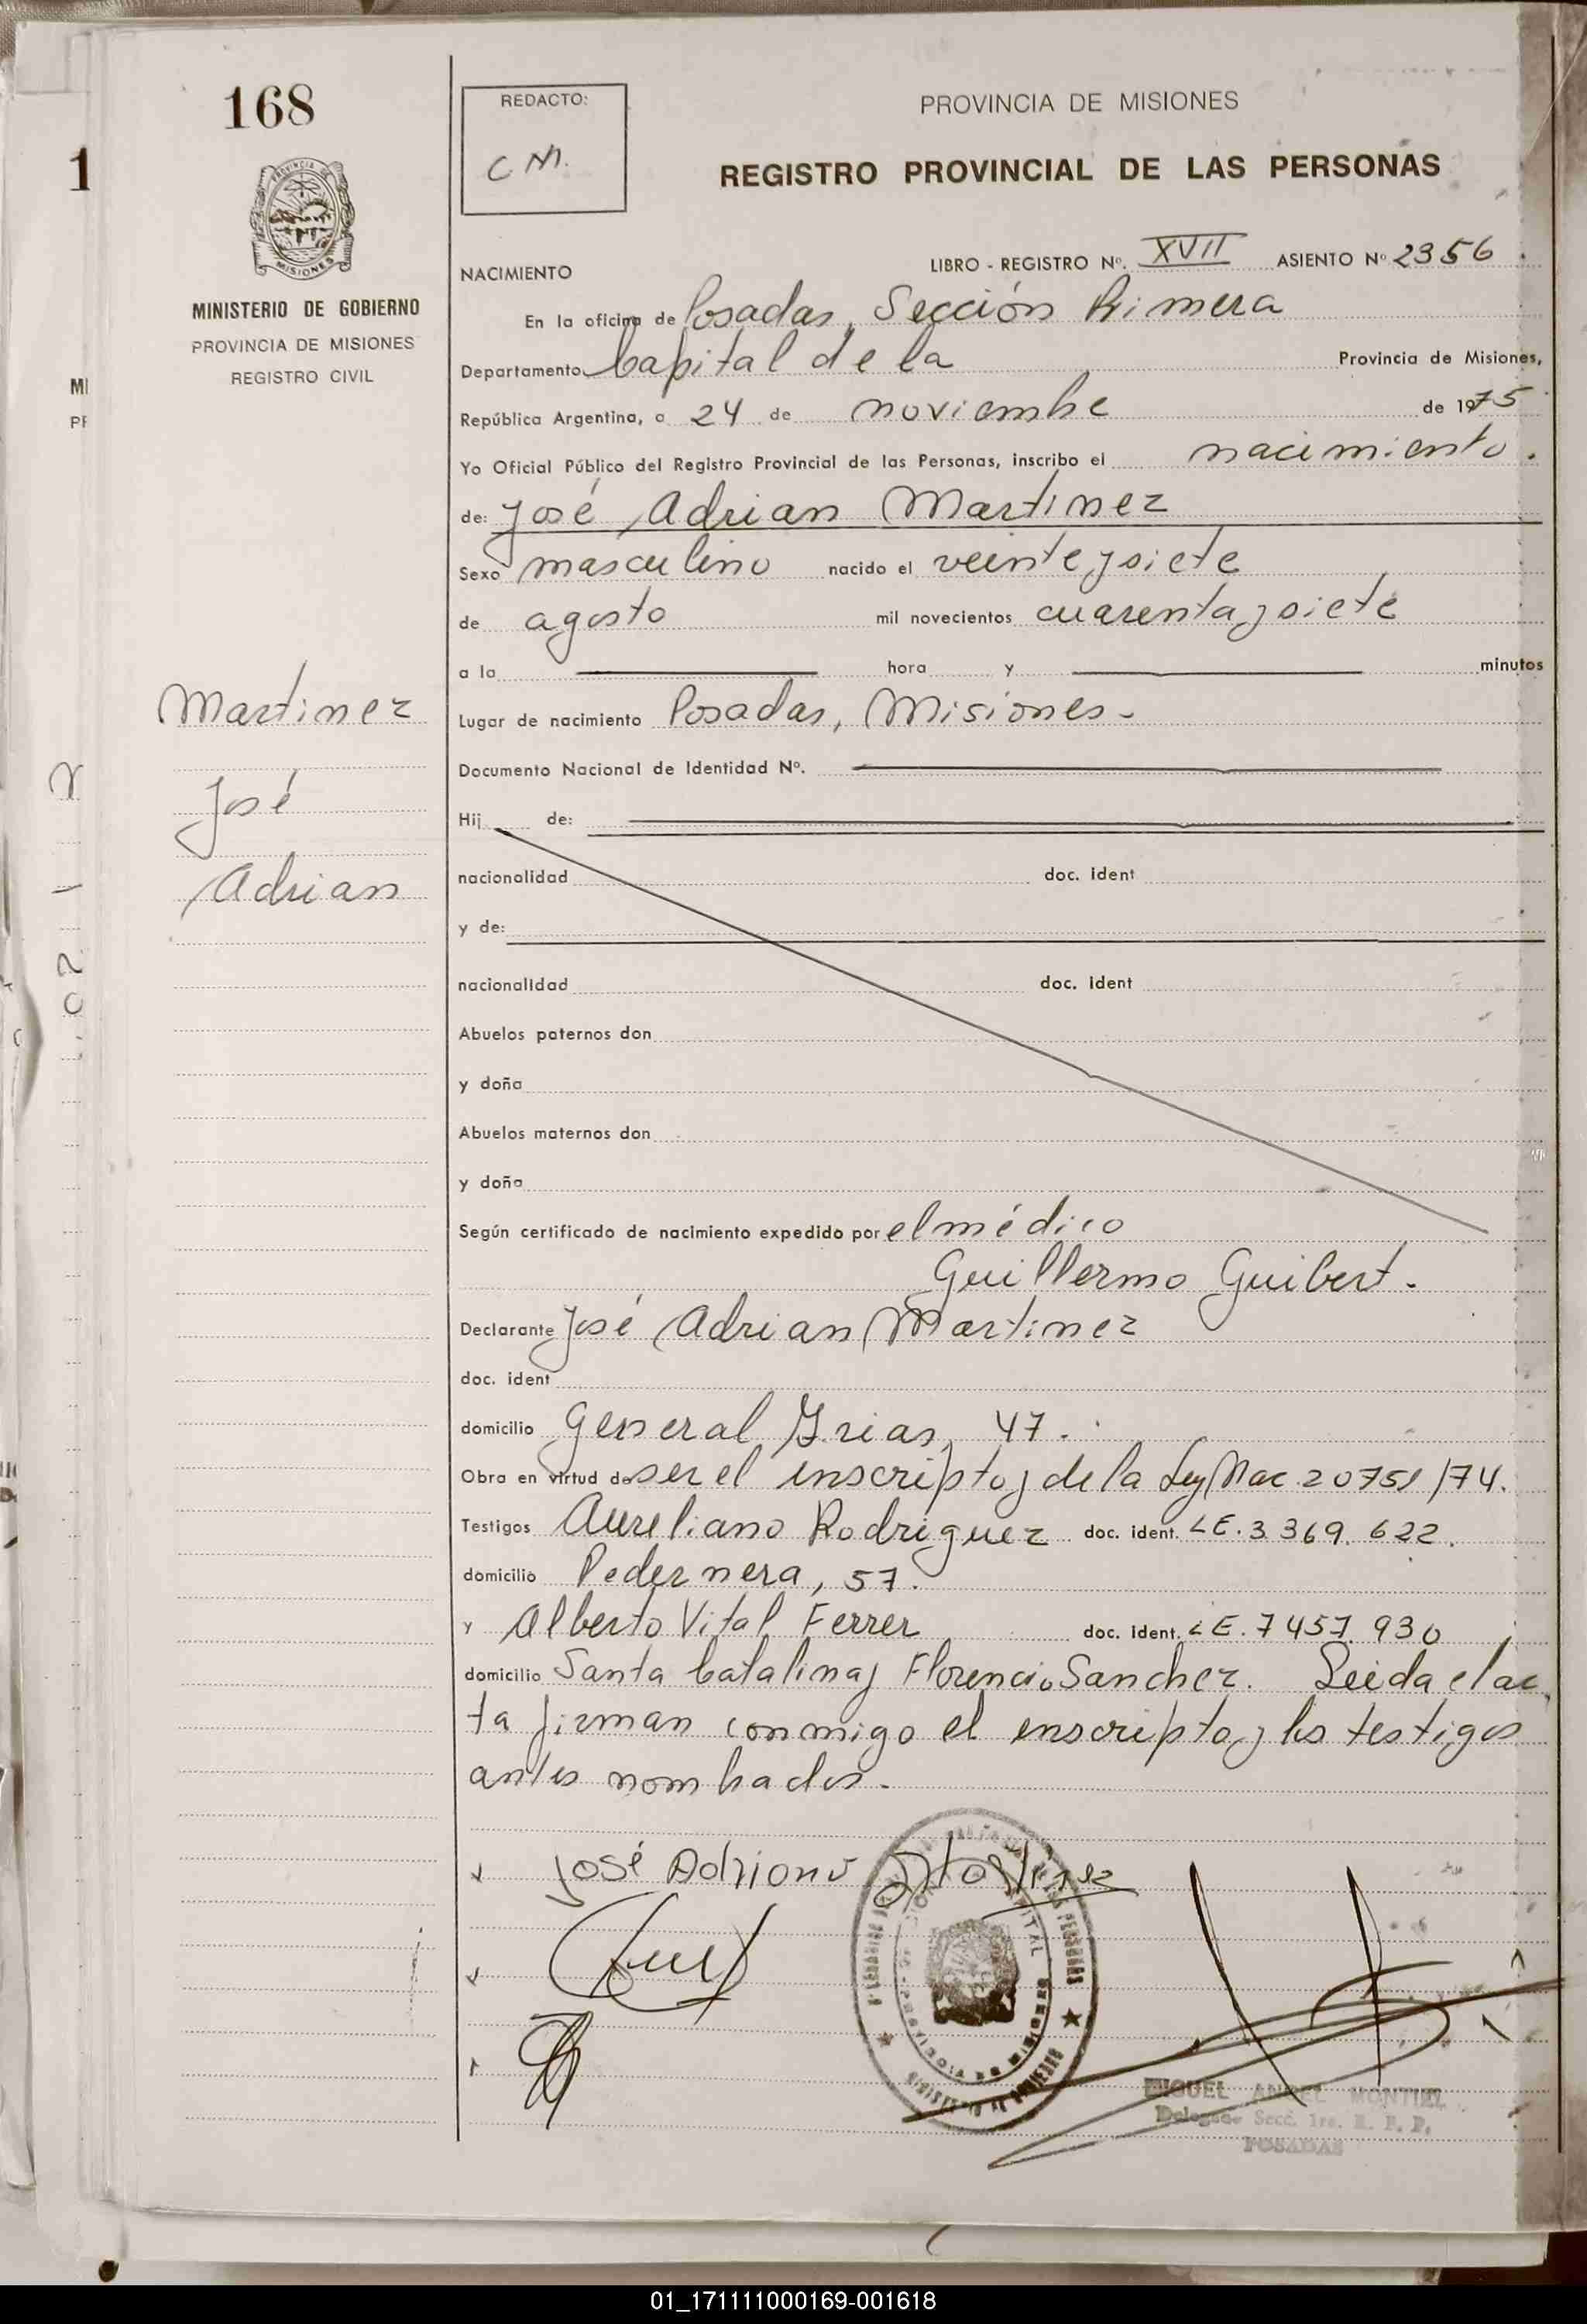 168
REDACTO:
C M.
PROVINCIA DE MISIONES
REGISTRO PROVINCIAL DE LAS PERSONAS
MINISTERIO DE GOBIERNO
PROVINCIA DE MISIONES
REGISTRO CIVIL
NACIMIENTO LIBRO - REGISTRO Nº. XVII ASIENTO Nº 2356
En la oficina de Posadas, Sección Primera
Departamento Capital de la Provincia de Misiones,
República Argentina, a 24 de noviembre de 1975
Yo Oficial Público del Registro Provincial de las Personas, inscribo el nacimiento.
de: José Adrian Martinez
Sexo masculino nacido el veinte y siete
de agosto mil novecientos cuarenta y siete
a la hora y minutos
Martinez
José
Adrian
Lugar de nacimiento Posadas, Misiones -
Documento Nacional de Identidad Nº.
Hij de:
nacionalidad doc. ident
y de:
nacionalidad doc. ident
Abuelos paternos don
y doña
Abuelos maternos don
y doña
Según certificado de nacimiento expedido por el médico
Guillermo Guibert.
Declarante José Adrian Martinez
doc. ident
domicilio General 47.
Obra en virtud de ser el inscripto y de la Ley Nac. 20751/74.
Testigos Aureliano Rodriguez doc. ident. LE. 3.369.622.
domicilio Pedernera, 57.
y Alberto Vital Ferrer doc. ident. LE. 7457.930
domicilio Santa Catalina y Florencio Sanchez. Leida el ac
ta firman conmigo el inscripto y los testigos
antes nombrados.
José Adriano Martinez
MIGUEL ANGEL MONTIEL
Delegado Secc. 1ra. R. P. P.
POSADAS
01_171111000169-001618